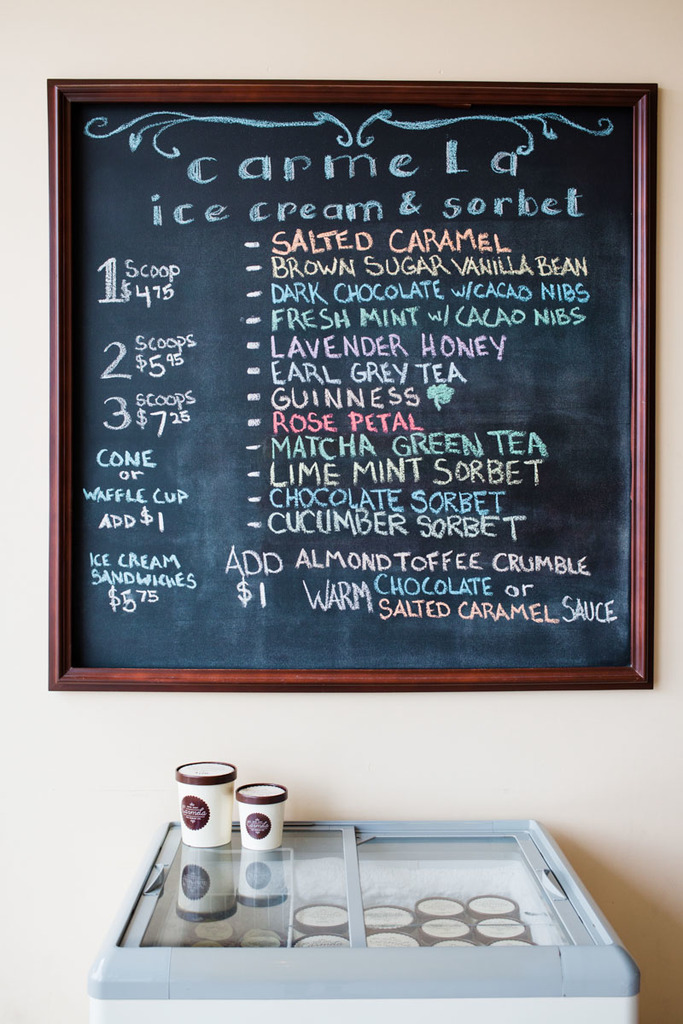 carmela
ice cream & sorbet
- SALTED CARAMEL
- BROWN SUGAR VANILLA BEAN
- DARK CHOCOLATE w/CACAO NIBS
- FRESH MINT w/ CACAO NIBS
- LAVENDER HONEY
- EARL GREY TEA
- GUINNESS
- ROSE PETAL
- MATCHA GREEN TEA
- LIME MINT SORBET
- CHOCOLATE SORBET
- CUCUMBER SORBET
1 SCOOP
$4.75
2 SCOOPS
$5.95
3 SCOOPS
$7.25
CONE
or
WAFFLE CUP
ADD $1
ICE CREAM
SANDWICHES
$5.75
ADD $1
ALMOND TOFFEE CRUMBLE
WARM CHOCOLATE or SALTED CARAMEL SAUCE
carmela
carmela